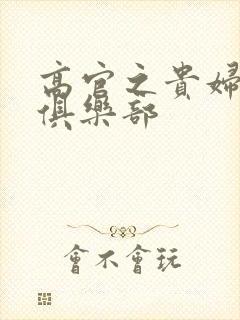 高官之貴婦
俱樂部
會不會玩